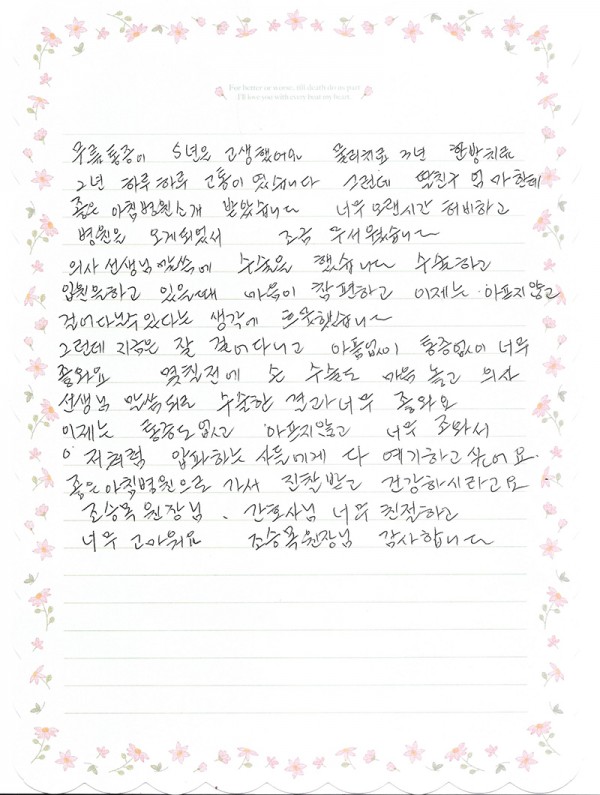 For better or worse, till death do us part
I'll love you with every beat my heart
무릎통증이 5년을 고생했어요 물리치료 3년 한방치료
2년 하루하루 고통이 였습니다 그런데 딸친구 엄마한테
좋은 아침병원소개 받았습니다 너무 오랜시간 허비하고
병원을 오게되었서 조금 무서웠습니다
의사 선생님 말씀에 수술을 했습니다 수술하고
입원을하고 있을때 마음이 참 편하고 이제는 아프지않고
걸어다닐수있다는 생각에 흐뭇했습니다
그런데 지금은 잘 걸어다니고 아픔없이 통증없이 너무
좋와요 몇칠전에 손 수술도 마음 놓고 의사
선생님 말씀되로 수술한 결과 너무 좋와요
이제는 통증도없고 아프지않고 너무 조와서
저처럼 압파하는 사람들에게 다 예기하고싶어요.
좋은아침병원으로 가서 진찰받고 건강하시라고요
조승목 원장님. 간호사님 너무 친절하고
너무 고마워요 조승목원장님 감사합니다